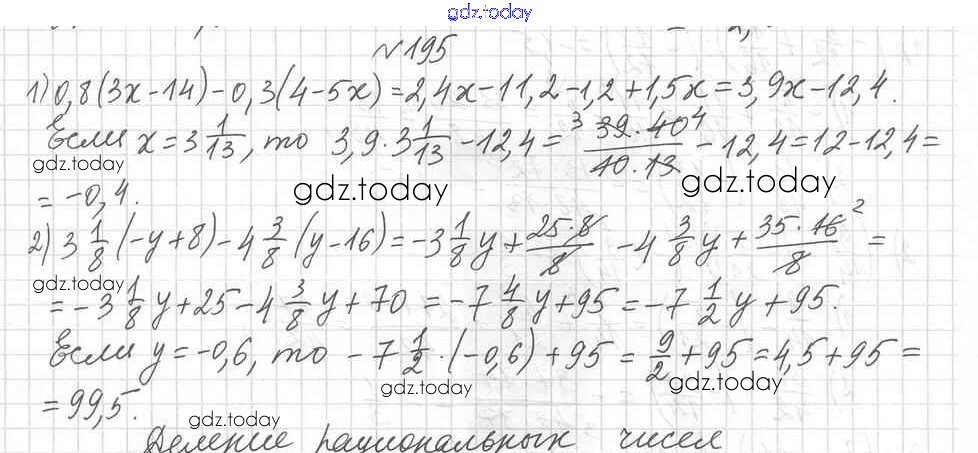 gdz.today
№195
1) 0,8(3x-14)-0,3(4-5x)=2,4x-11,2-1,2+1,5x=3,9x-12,4.
Если x=3 1/13, то 3,9·3 1/13 -12,4= 3 39·40 4/10·13 -12,4=12-12,4=
gdz.today
gdz.today gdz.today
=-0,4.
2) 3 1/8 (-y+8)-4 3/8 (y-16)=-3 1/8 y+ 25·8/8 -4 3/8 y+ 35·16 2/8 =
gdz.today
=-3 1/8 y+25-4 3/8 y+70 =-7 4/8 y+95=-7 1/2 y+95.
Если y=-0,6, то -7 1/2 ·(-0,6)+95= 9/2 +95=4,5+95=
gdz.today gdz.today
=99,5.
gdz.today
Деление рациональных чисел